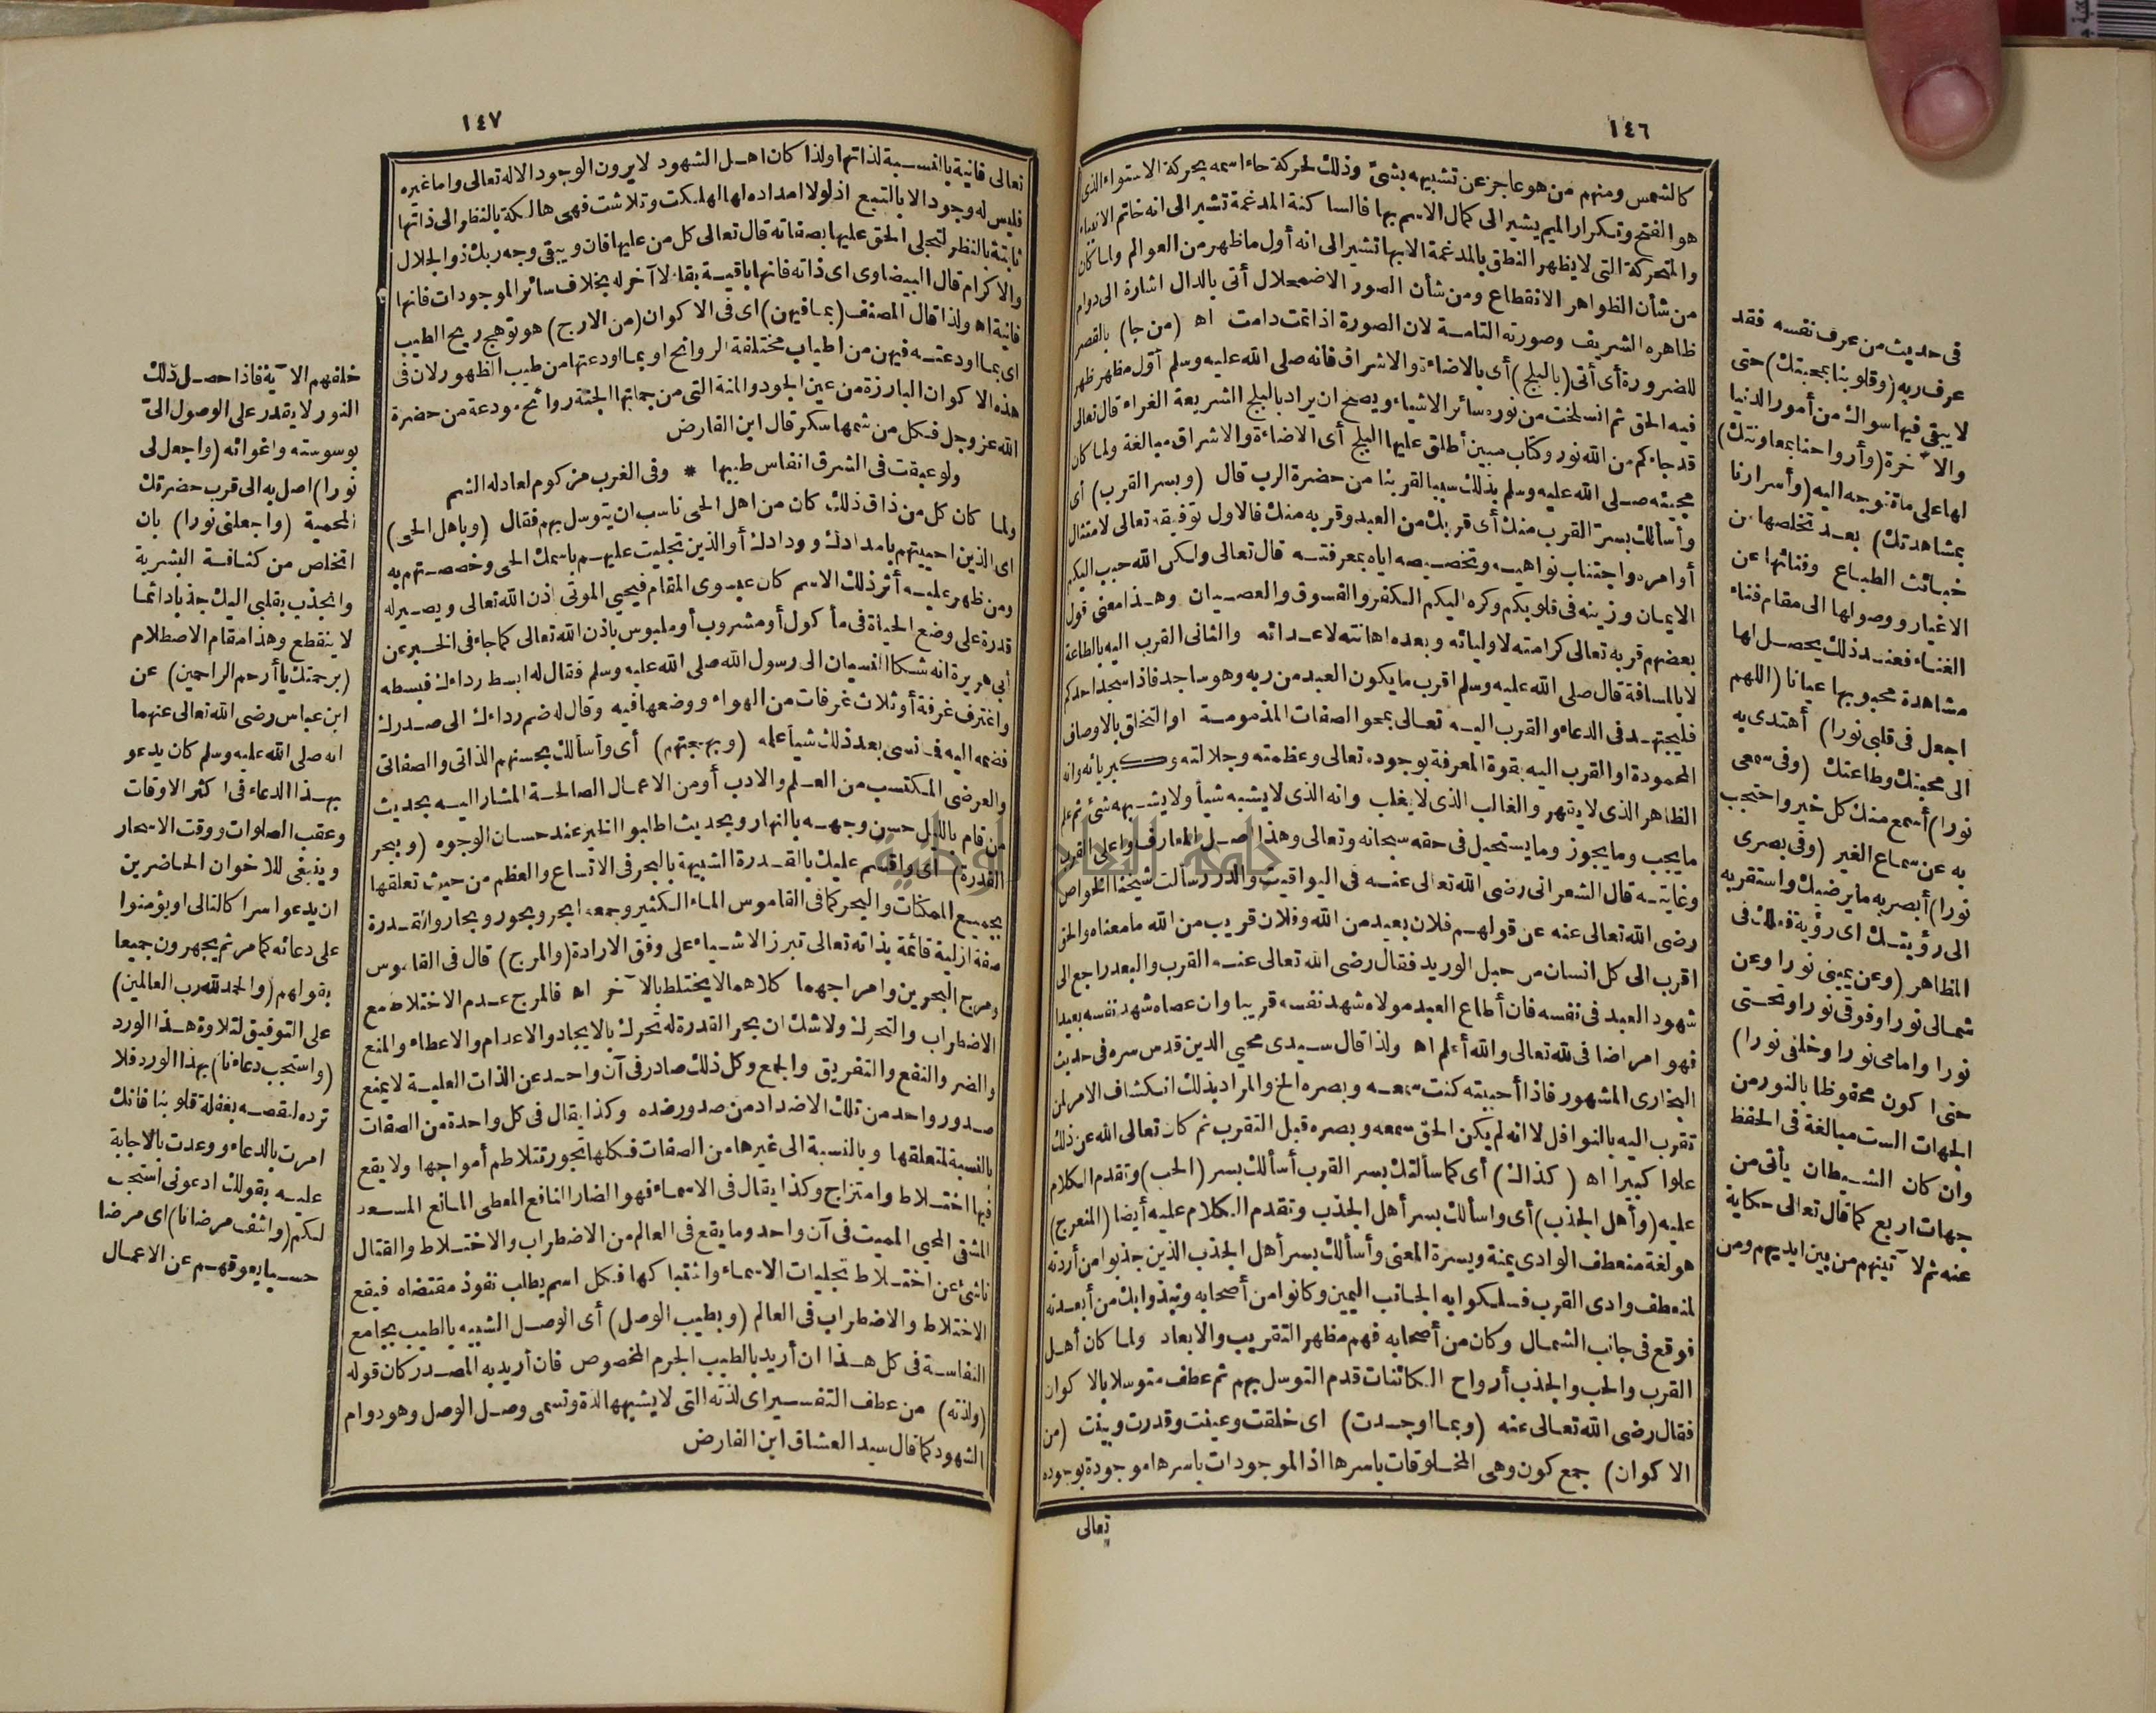 ١٤٦
كالشمس ومنهم من هو عاجز عن تشبيهه بشئ وذلك لحركة حاء اسمه بحركة الاستواء الذى
هو الفتح وتكرار الميم يشير الى كمال الاسم بها فالساكنة المدغمة تشير الى انه خاتم الانبياء
والمتحركة التى لا يظهر النطق بالمدغمة الا بها تشير الى انه أول ما ظهر من العوالم ولما كان
من شأن الظواهر الانقطاع ومن شأن الصور الاضمحلال أتى بالدال اشارة الى دوام
ظاهره الشريف وصورته التامة لان الصورة اذا تمت دامت اه (من جا) بالقصر
للضرورة أى أتى (بالبلج) أى بالاضاءة والاشراق فانه صلى الله عليه وسلم أول مظهر ظهر
فيه الحق ثم انسلخت من نوره سائر الاشياء ويصح ان يراد بالبلج الشريعة الغراء قال تعالى
قد جاءكم من الله نور وكتاب مبين أطلق عليها البلج أى الاضاءة والاشراق مبالغة ولما كان
مجيئه صلى الله عليه وسلم بذلك سببا لقربنا من حضرة الرب قال (وبسر القرب) أى
وأسألك بسر القرب منك أى قربك من العبد وقربه منك فالاول توفيقه تعالى لامتثال
أوامره واجتناب نواهيه وتخصيصه اياه بمعرفته قال تعالى ولكن الله حبب اليكم
الايمان وزينه فى قلوبكم وكره اليكم الكفر والفسوق والعصيان وهذا معنى قول
بعضهم قربه تعالى كرامته لاوليائه وبعده اهانته لاعدائه والثانى القرب اليه بالطاعة
لا بالمسافة قال صلى الله عليه وسلم اقرب ما يكون العبد من ربه وهو ساجد فاذا سجد احدكم
فليجتهد فى الدعاء والقرب اليه تعالى بمحو الصفات المذمومة او التخلق بالاوصاف
المحمودة او القرب اليه بقوة المعرفة بوجوده تعالى وعظمته وجلالته وكبريائه وانه
الظاهر الذى لا يقهر والغالب الذى لا يغلب وانه الذى لا يشبه شيأ ولا يشبهه شئ ثم علم
ما يجب وما يجوز وما يستحيل فى حقه سبحانه وتعالى وهذا اصل المعارف واعلى القرب
وغايته قال الشعرانى رضى الله تعالى عنه فى اليواقيت والدرر سألت شيخنا الخواص
رضى الله تعالى عنه عن قولهم فلان بعيد من الله وفلان قريب من الله ما معناه والحق
اقرب الى كل انسان من حبل الوريد فقال رضى الله تعالى عنه القرب والبعد راجع الى
شهود العبد فى نفسه فان أطاع العبد مولاه شهد نفسه قريبا وان عصاه شهد نفسه بعيدا
فهو امر اضافى لله تعالى والله أعلم اه ولذا قال سيدى محيى الدين قدس سره فى حديث
البخارى المشهور فاذا أحببته كنت سمعه وبصره الخ والمراد بذلك انكشاف الامر لمن
تقرب اليه بالنوافل لا انه لم يكن الحق سمعه وبصره قبل التقرب ثم كان تعالى الله عن ذلك
علوا كبيرا اه (كذاك) أى كما سألتك بسر القرب أسألك بسر (الحب) وتقدم الكلام
عليه (وأهل الجذب) أى واسألك بسر أهل الجذب وتقدم الكلام عليه أيضا (المنعرج)
هو لغة منعطف الوادى يمنة ويسرة المعنى وأسألك بسر أهل الجذب الذين جذبوا من أردته
لمنعطف وادى القرب فسلكوا به الجانب اليمين وكانوا من أصحابه ونبذوا بك من أبعدته
فوقع فى جانب الشمال وكان من أصحابه فهم مظاهر التقريب والابعاد ولما كان أهل
القرب والحب والجذب أرواح الكائنات قدم التوسل بهم ثم عطف متوسلا بالاكوان
فقال رضى الله تعالى عنه (وبما اوجدت) اى خلقت وعينت وقدرت وبينت (من
الاكوان) جمع كون وهى المخلوقات باسرها اذ الموجودات باسرها موجودة بوجوده
تعالى
فى حديث من عرف نفسه فقد
عرف ربه (وقلوبنا بمحبتك) حتى
لا يبقى فيها سواك من أمور الدنيا
والآخرة (وأرواحنا بمعاونتك)
لها على ما تتوجه اليه (وأسرارنا
بمشاهدتك) بعد تخلصها من
خبائث الطباع وفنائها عن
الاغيار ووصولها الى مقام فناء
الغناء فعند ذلك يحصل لها
مشاهدة محبوبها عيانا (اللهم
اجعل فى قلبى نورا) أهتدى به
الى محبتك وطاعتك (وفى سمعى
نورا) أسمع منك كل خير واحتجب
به عن سماع الغير (وفى بصرى
نورا) أبصر به ما يرضيك واستقر به
الى رؤيتك اى رؤية فعلك فى
المظاهر (وعن يمينى نورا وعن
شمالى نورا وفوقى نورا وتحتى
نورا وامامى نورا وخلفى نورا)
حتى اكون محفوظا بالنور من
الجهات الست مبالغة فى الحفظ
وان كان الشيطان يأتى من
جهات اربع كما قال تعالى حكاية
عنه ثم لآتينهم من بين ايديهم ومن
١٤٧
تعالى فانية بالنسبة لذاتها ولذا كان اهل الشهود لا يرون الوجود الا له تعالى واما غيره
فليس له وجود الا بالتبع اذ لولا امداده لها لهلكت وتلاشت فهى هالكة بالنظر الى ذاتها
ثابتة بالنظر لتجلى الحق عليها بصفاته قال تعالى كل من عليها فان ويبقى وجه ربك ذو الجلال
والاكرام قال البيضاوى اى ذاته فانها باقية بقاء لا آخر له بخلاف سائر الموجودات فانها
فانية اه ولذا قال المصنف (بما فيهن) اى فى الاكوان (من الارج) هو توهج ريح الطيب
اى بما اودعته فيهن من اطياب مختلفة الروائح او بما اودعتها من طيب الظهور لان فى
هذه الاكوان البارزة من عين الجود والمنة التى من جملتها الجنة روائح مودعة من حضرة
الله عز وجل فكل من شمها سكر قال ابن الفارض
ولو عبقت فى الشرق انفاس طيبها * وفى الغرب مزكوم لعاد له الشم
ولما كان كل من ذاق ذلك كان من اهل الحى ناسب ان يتوسل بهم فقال (ويا هل الحى)
اى الذين احييتهم بامدادك وودادك أو الذين تجليت عليهم باسمك الحى وخصصتهم به
ومن ظهر عليه أثر ذلك الاسم كان عيسوى المقام فيحيى الموتى اذن الله تعالى ويصير له
قدرة على وضع الحياة فى مأكول أو مشروب أو ملبوس باذن الله تعالى كما جاء فى الخبر عن
أبى هريرة انه شكا النسيان الى رسول الله صلى الله عليه وسلم فقال له ابسط رداءك فبسطه
واغترف غرفة أو ثلاث غرفات من الهواء ووضعها فيه وقال له ضم رداءك الى صدرك
فضمه اليه فما نسى بعد ذلك شيأ علمه (وببهجتهم) أى وأسألك بحسنهم الذاتى والصفاتى
والعرضى المكتسب من العلم والادب أو من الاعمال الصالحة المشار اليه بحديث
من قام بالليل حسن وجهه بالنهار وبحديث اطلبوا الخير عند حسان الوجوه (وببحر
القدرة) اى واقسم عليك بالقدرة الشبيهة بالبحر فى الاتساع والعظم من حيث تعلقها
بجميع الممكنات والبحر كما فى القاموس الماء الكثير وجمعه ابحر وبحور وبحار والقدرة
صفة ازلية قائمة بذاته تعالى تبرز الاشياء على وفق الارادة (والمرج) قال فى القاموس
ومرج البحرين وامرجهما كلاهما لا يختلط بالآخر اه فالمرج عدم الاختلاط مع
الاضطراب والتحرك ولا شك ان بحر القدرة له تحرك بالايجاد والاعدام والاعطاء والمنع
والضر والنفع والتفريق والجمع وكل ذلك صادر فى آن واحد عن الذات العلية لا يمنع
صدور واحد من تلك الاضداد من صدور ضده وكذا يقال فى كل واحدة من الصفات
بالنسبة لمتعلقها وبالنسبة الى غيرها من الصفات فكلها تجور تتلاطم أمواجها ولا يقع
فيها اختلاط وامتزاج وكذا يقال فى الاسماء فهو الضار النافع المعطى المانع المسعد
المشقى المحيى المميت فى آن واحد وما يقع فى العالم من الاضطراب والاختلاط والقتال
ناشئ عن اختلاط تجليات الاسماء واشتباكها فكل اسم يطلب نفوذ مقتضاه فيقع
الاختلاط والاضطراب فى العالم (وبطيب الوصل) أى الوصل الشبيه بالطيب بجامع
النفاسة فى كل هذا ان أريد بالطيب الجرم المخصوص فان أريد به المصدر كان قوله
(ولذته) من عطف التفسير اى لذته التى لا يشبهها لذة وتسمى وصل الوصل وهو دوام
الشهود كما قال سيد العشاق ابن الفارض
خلفهم الآية فاذا حصل ذلك
النور لا يقدر على الوصول الىّ
بوسوسته واغوائه (واجعل لى
نورا) اصل به الى قرب حضرتك
المحمية (واجعلنى نورا) بان
اتخلص من كثافة البشرية
وانجذب بقلبى اليك جذبا دائما
لا ينقطع وهذا مقام الاصطلام
(برحمتك يا أرحم الراحمين) عن
ابن عباس رضى الله تعالى عنهما
انه صلى الله عليه وسلم كان يدعو
بهذا الدعاء فى اكثر الاوقات
وعقب الصلوات ووقت الاسحار
وينبغى للاخوان الحاضرين
ان يدعوا سرا كالتالى او يؤمنوا
على دعائه كما مر ثم يجهرون جميعا
بقولهم (والحمد لله رب العالمين)
على التوفيق لتلاوة هذا الورد
(واستجب دعاءنا) بهذا الورد فلا
ترده لنقصه بغفلة قلوبنا فانك
امرت بالدعاء ووعدت بالاجابة
عليه بقولك ادعونى استجب
لكم (واشف مرضانا) اى مرضا
حسيا يعوقهم عن الاعمال